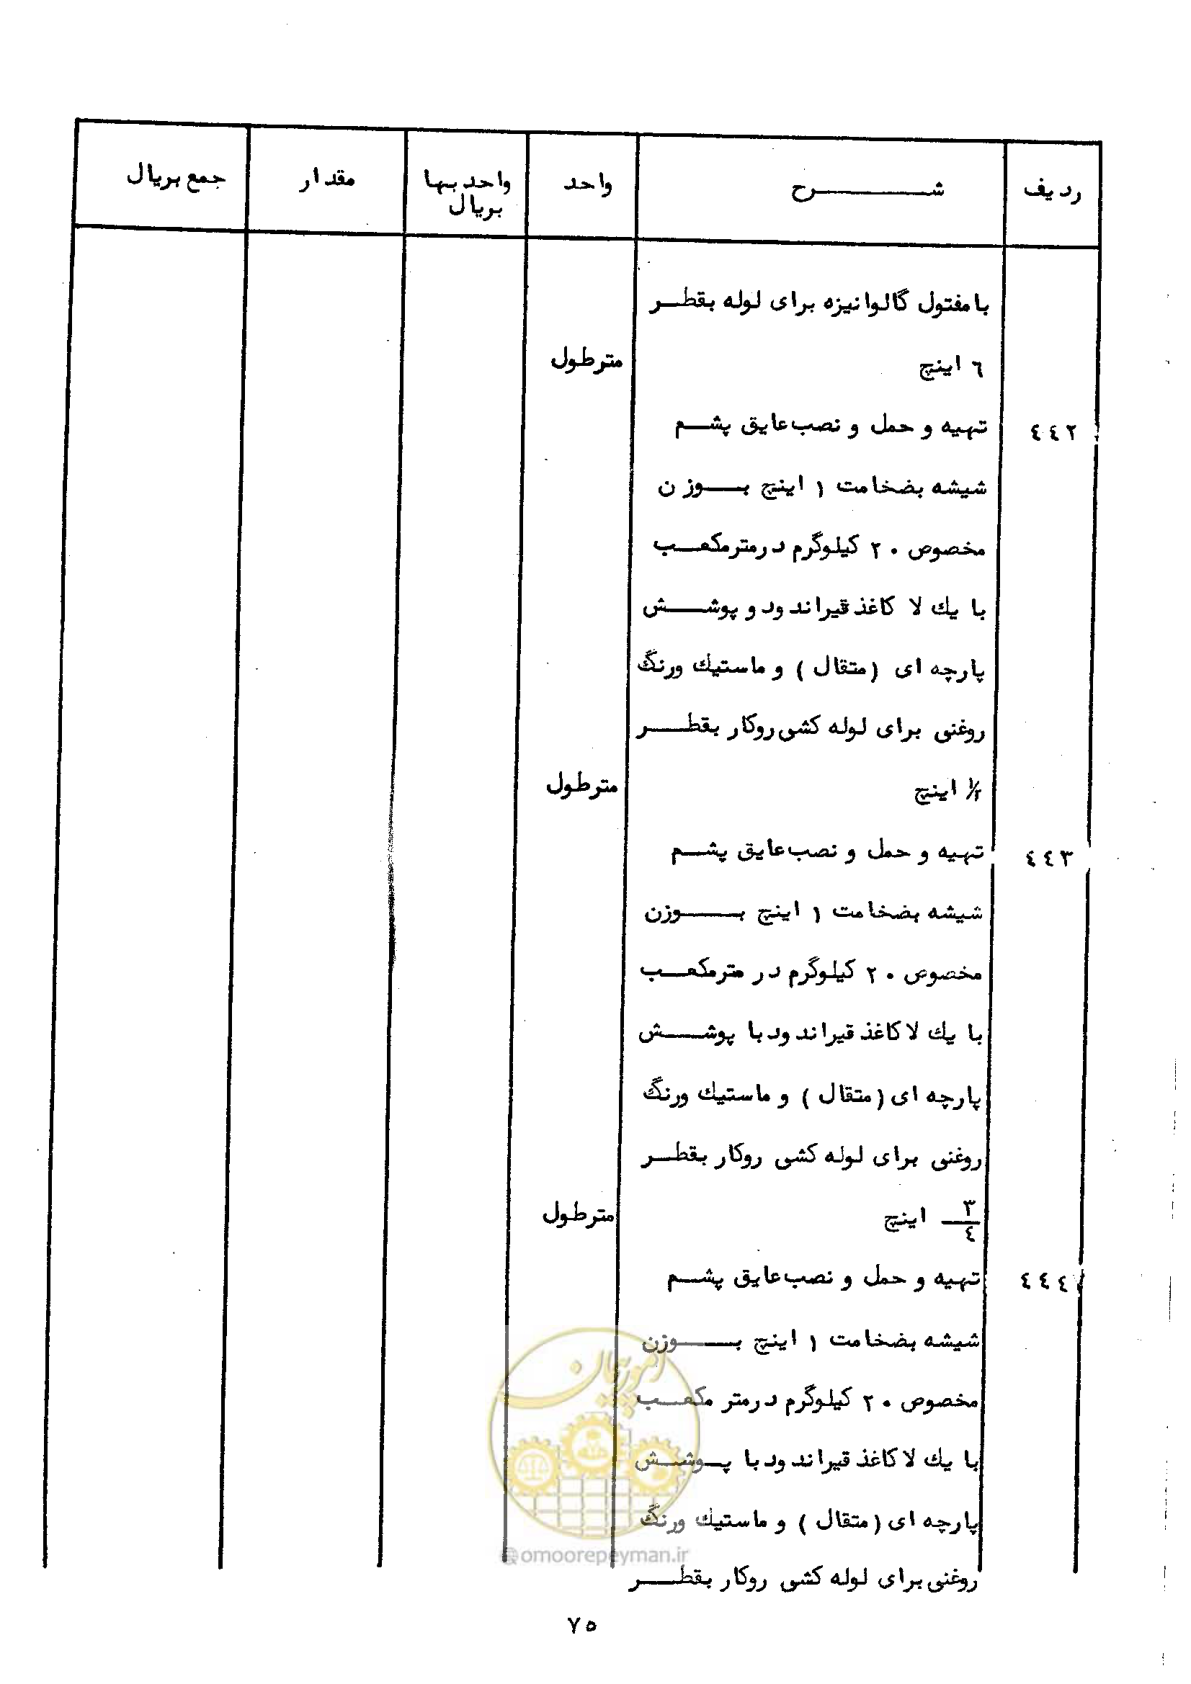 ردیف شرح واحد واحد بها بریال مقدار جمع بریال
با مفتول گالوانیزه برای لوله بقطر
٦ اینچ مترطول
٤٤٢ تهیه و حمل و نصب عایق پشم
شیشه بضخامت ١ اینچ بوزن
مخصوص ٢٠ کیلوگرم در مترمکعب
با یك لا کاغذ قیراندود و پوشش
پارچه ای (متقال) و ماستیك ورنگ
روغنی برای لوله کشی روکار بقطر
١/٢ اینچ مترطول
٤٤٣ تهیه و حمل و نصب عایق پشم
شیشه بضخامت ١ اینچ بوزن
مخصوص ٢٠ کیلوگرم در مترمکعب
با یك لا کاغذ قیراندود با پوشش
پارچه ای (متقال) و ماستیك ورنگ
روغنی برای لوله کشی روکار بقطر
٣/٤ اینچ مترطول
٤٤٤ تهیه و حمل و نصب عایق پشم
شیشه بضخامت ١ اینچ بوزن
مخصوص ٢٠ کیلوگرم در متر مکعب
با یك لا کاغذ قیراندود با پوشش
پارچه ای (متقال) و ماستیك ورنگ
روغنی برای لوله کشی روکار بقطر
٧٥
امور پیمان
@omoorepeyman.ir